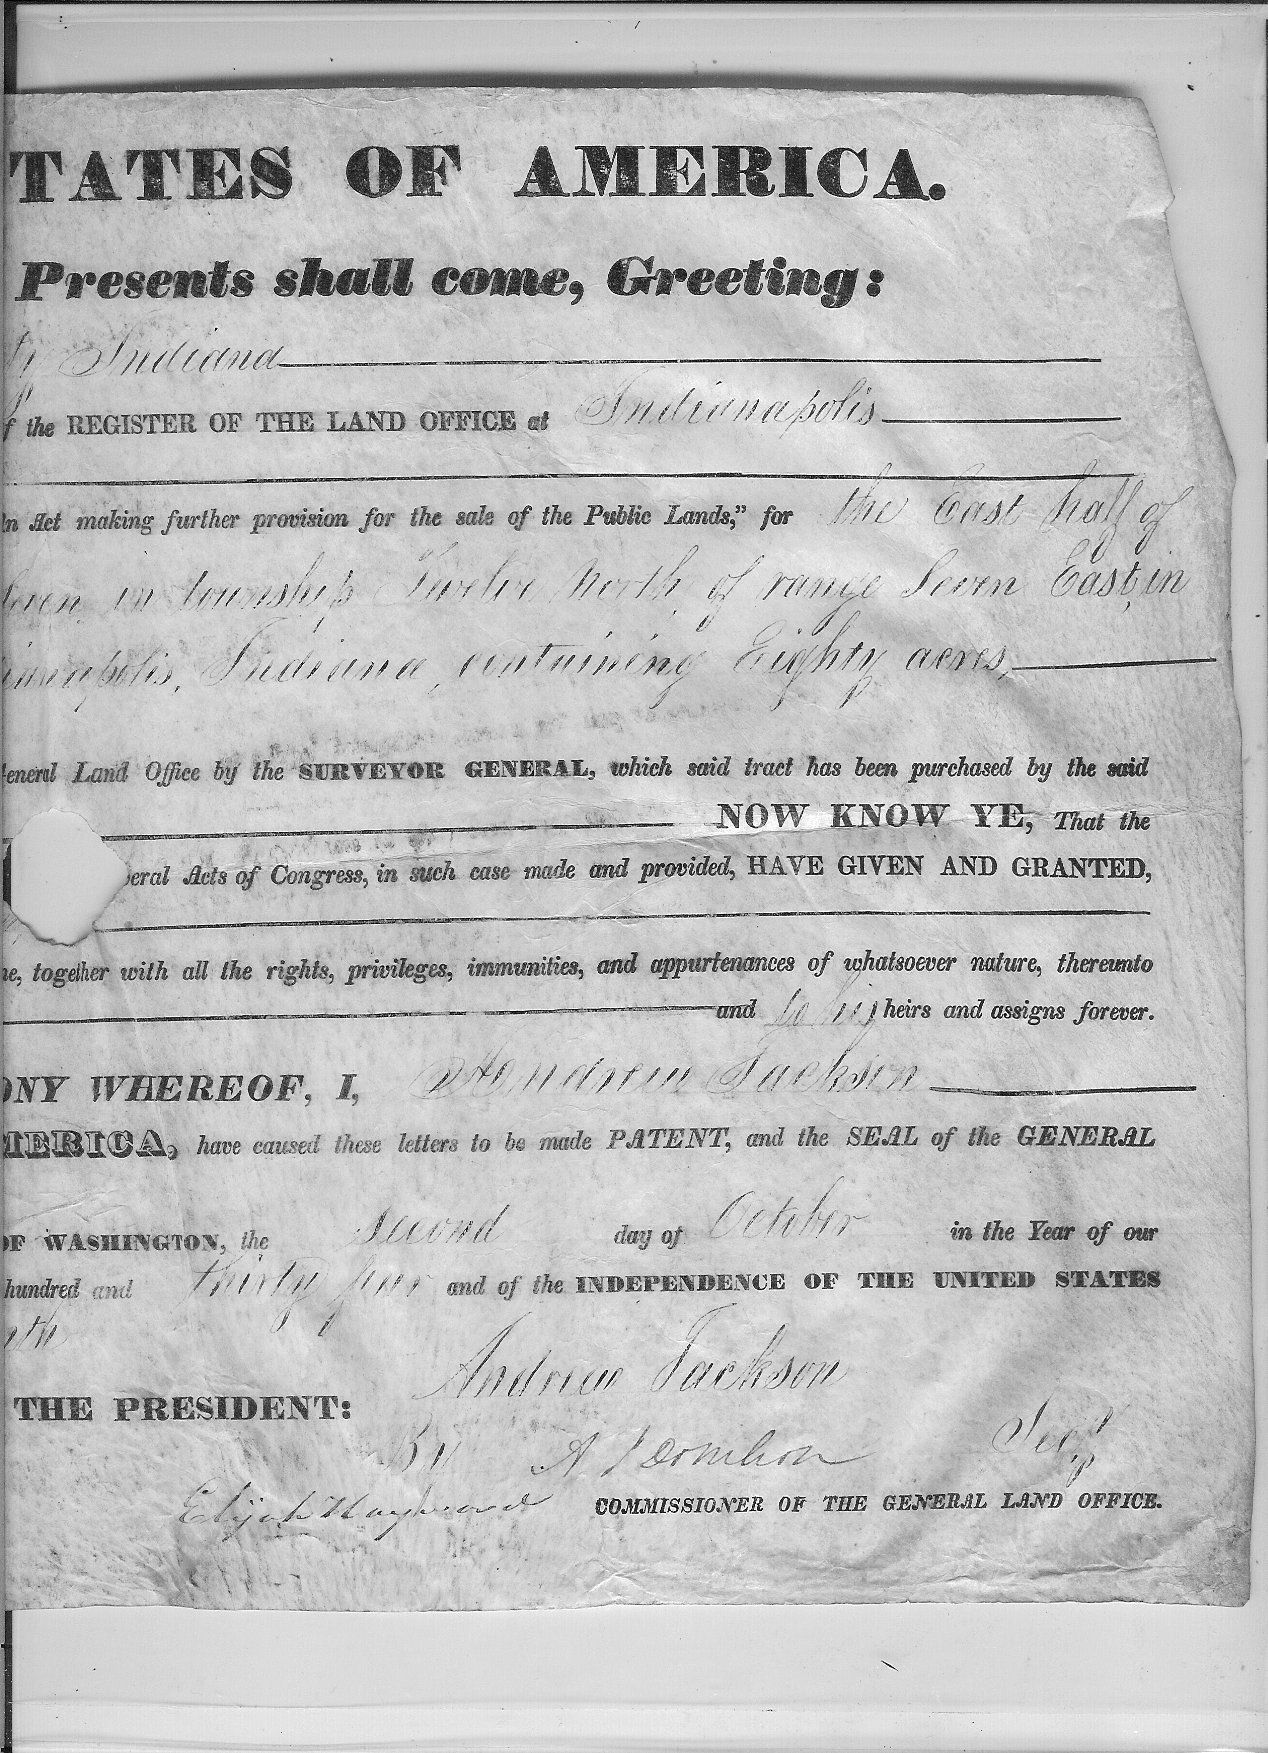 TATES OF AMERICA.
Presents shall come, Greeting:
ty Indiana
f the REGISTER OF THE LAND OFFICE at Indianapolis
An Act making further provision for the sale of the Public Lands," for the East half of
leven in township Twelve North of range Seven East, in
ianapolis, Indiana, containing Eighty acres,
General Land Office by the SURVEYOR GENERAL, which said tract has been purchased by the said
NOW KNOW YE, That the
veral Acts of Congress, in such case made and provided, HAVE GIVEN AND GRANTED,
me, together with all the rights, privileges, immunities, and appurtenances of whatsoever nature, thereunto
and to his heirs and assigns forever.
ONY WHEREOF, I, Andrew Jackson
MERICA, have caused these letters to be made PATENT, and the SEAL of the GENERAL
OF WASHINGTON, the second day of October in the Year of our
hundred and thirty four and of the INDEPENDENCE OF THE UNITED STATES
nth
THE PRESIDENT: Andrew Jackson
By A J Donelson Sec.y
Elijah Hayward COMMISSIONER OF THE GENERAL LAND OFFICE.